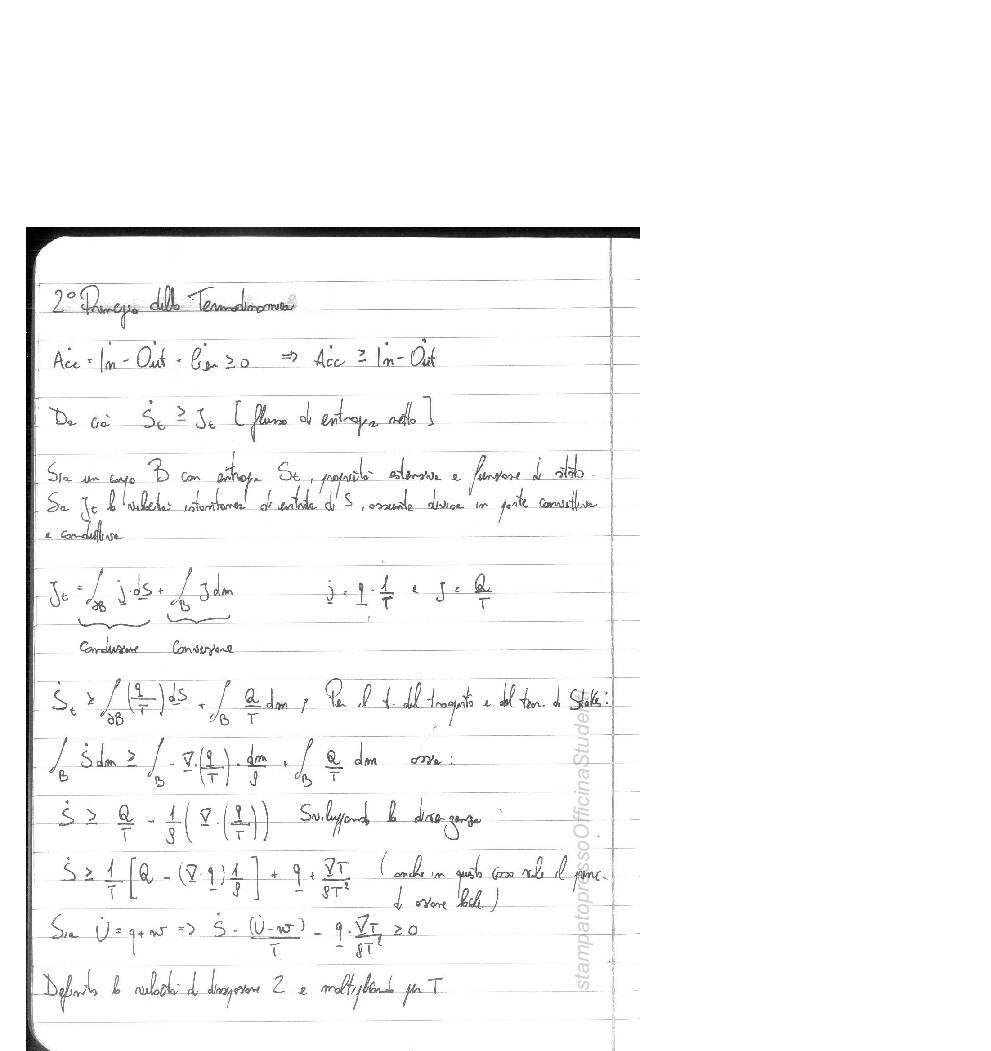 2° Principio della Termodinamica
Acc = In - Out + Gen ≥ 0 ⇒ Acc ≥ In - Out
Da cui Ṡt ≥ Jt [flusso di entropia netto]
Sia un corpo B con entropia St, proprietà estensiva e funzione di stato.
Sia Jt la velocità istantanea di entrata di S, essente divisa in parte convettiva
e conduttiva
Jt = ∫∂B j·dS + ∫B J dm j = q · 1/T e J = Q/T
Conduzione Convezione
Ṡt ≥ ∫∂B (q/T) dS + ∫B Q/T dm ; Per il t. del trasporto e del teor. di Stokes:
∫B Ṡ dm ≥ ∫B - ∇·(q/T) · dm/ρ + ∫B Q/T dm ossia:
Ṡ ≥ Q/T - 1/ρ (∇·(q/T)) Sviluppando la divergenza:
Ṡ ≥ 1/T [Q - (∇·q) 1/ρ] + q + ∇T/ρT² (anche in questo caso vale il princ.
di azione locale)
Sia U̇ = q + w ⇒ Ṡ - (U̇ - w)/T - q · ∇T/ρT² ≥ 0
Definita la velocità di dissipazione Z e moltiplicando per T
stampatopressoOfficinaStuden